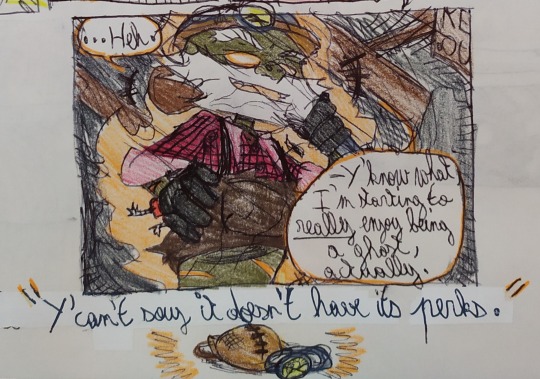 ...Heh.
—Y'know what
I'm starting to
really enjoy being
a ghost,
actually.
"Y'can't say it doesn't have its perks."